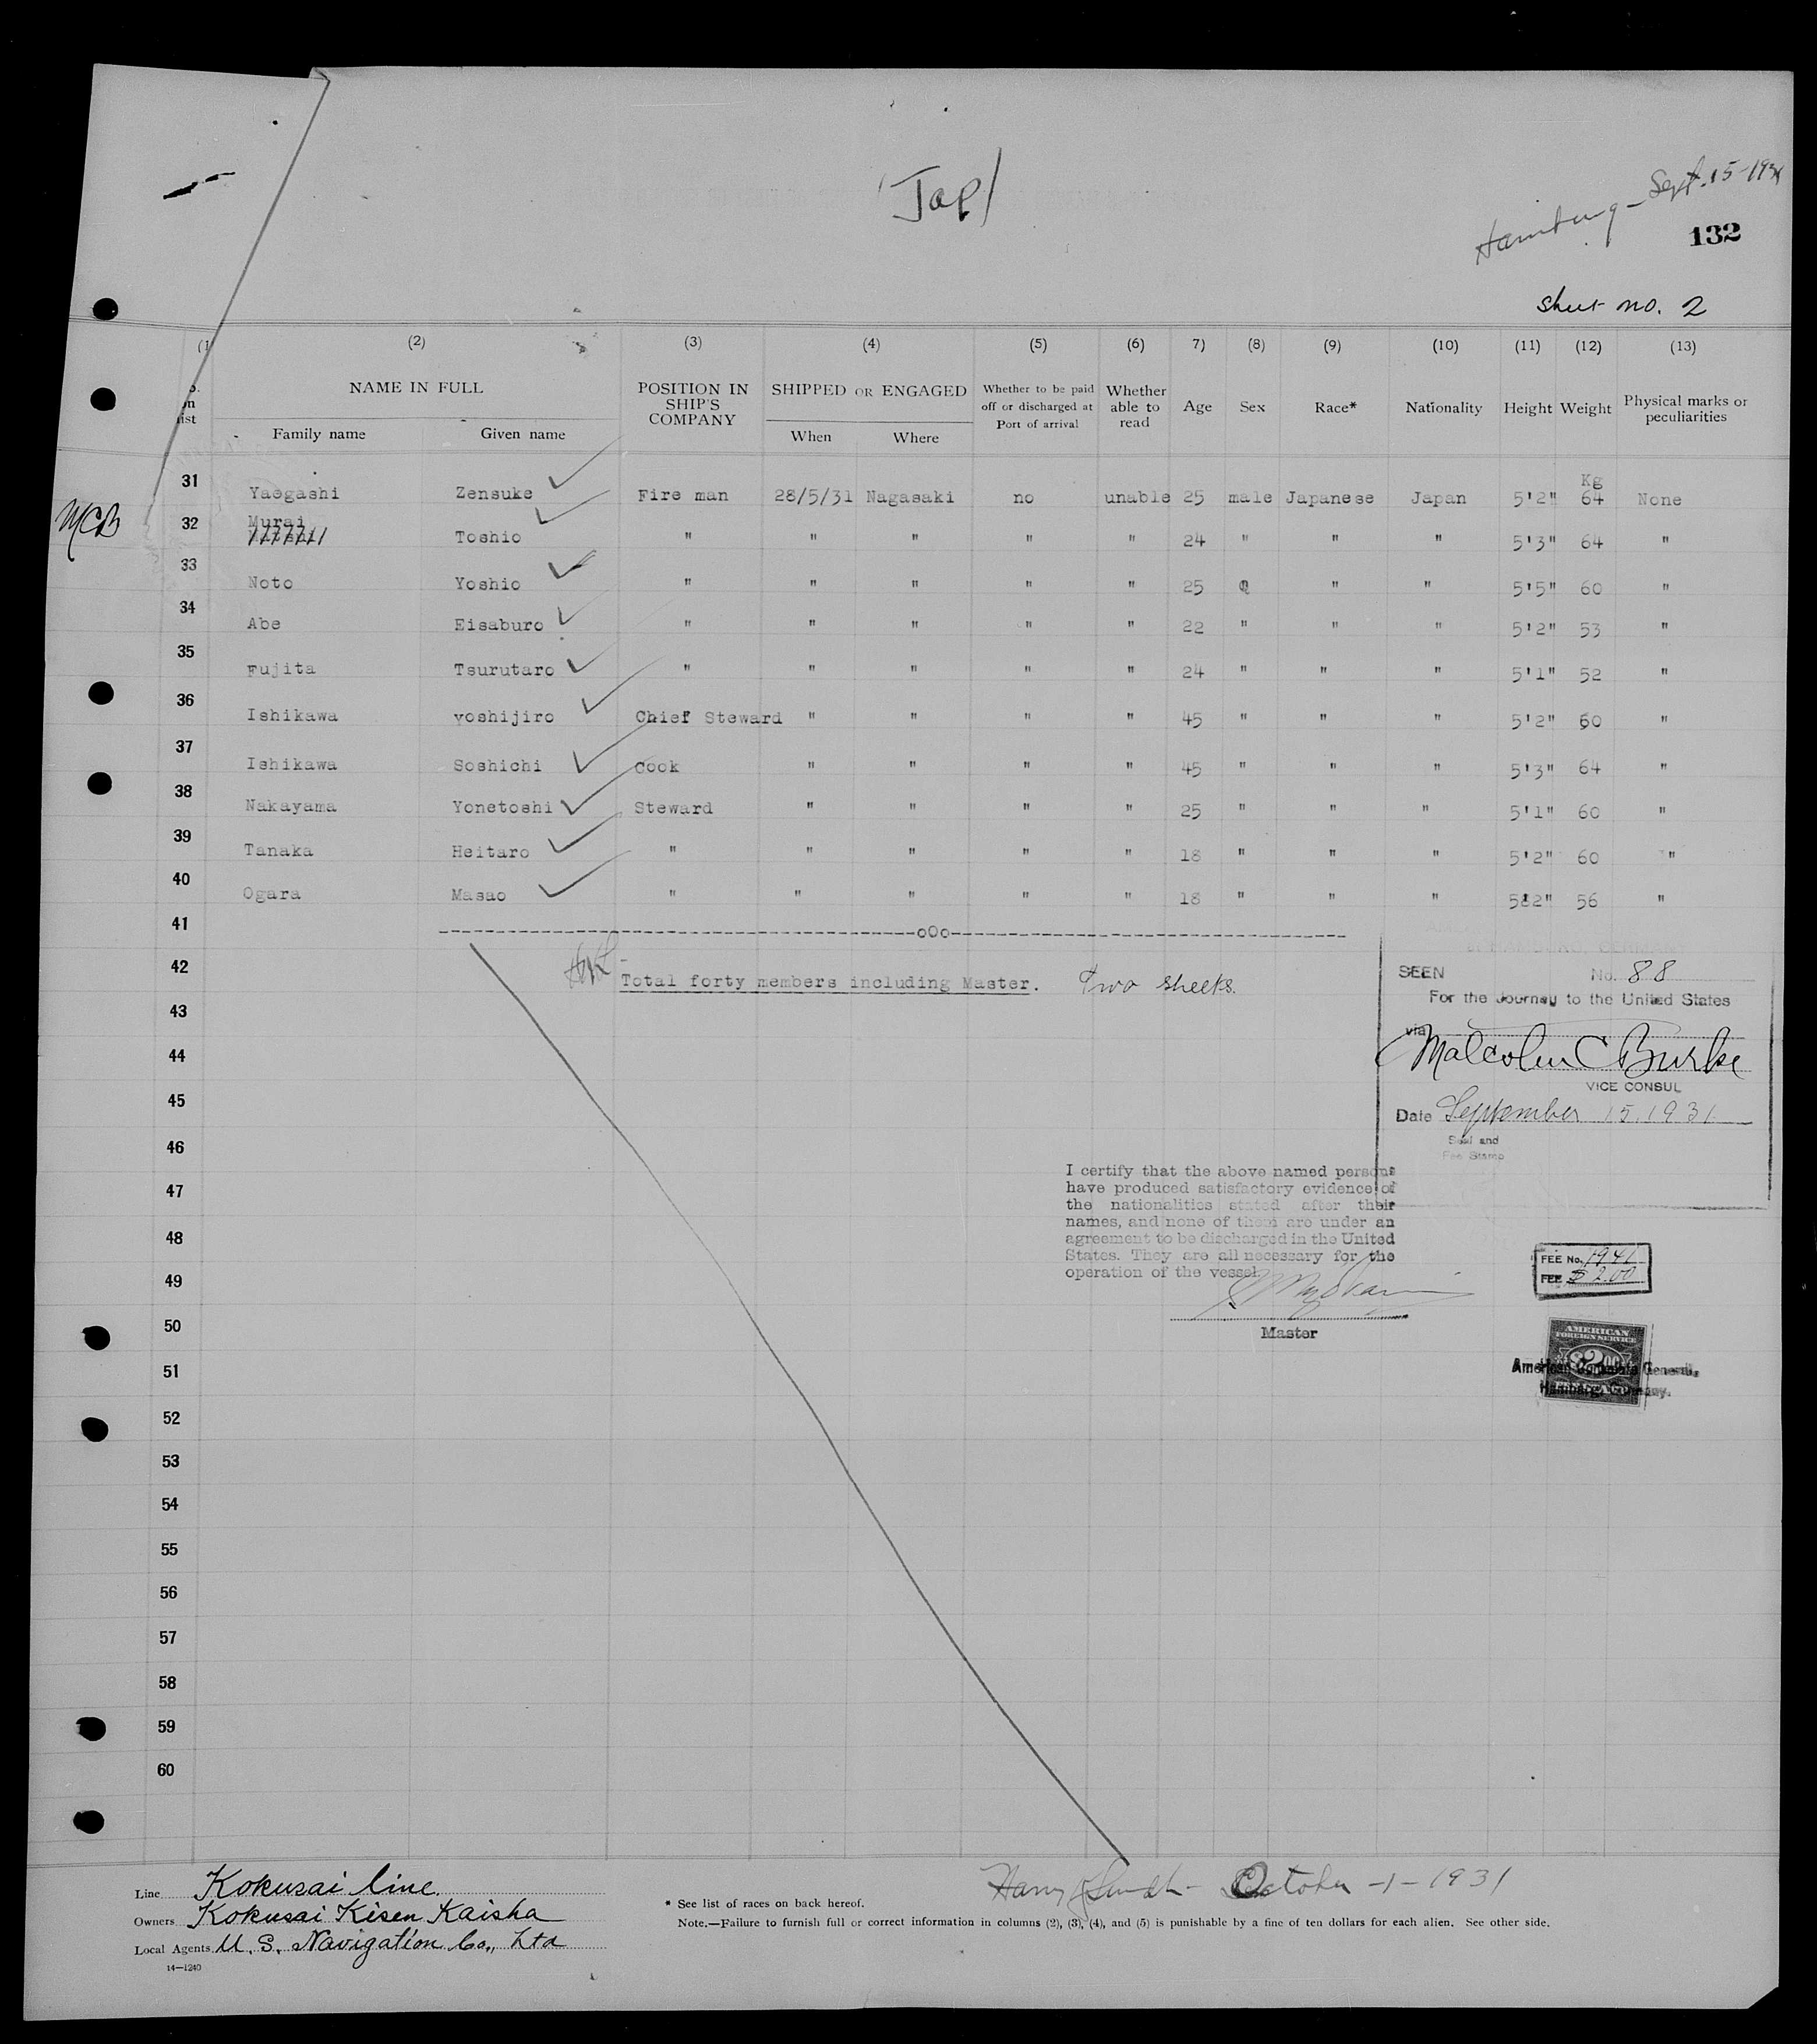 Jap
Hamburg - Sept. 15 - 1931
132
sheet no. 2
(1 (2) (3) (4) (5) (6) 7) (8) (9) (10) (11) (12) (13)
NAME IN FULL
Family name Given name
POSITION IN
SHIP'S
COMPANY
SHIPPED OR ENGAGED
When Where
Whether to be paid
off or discharged at
Port of arrival
Whether
able to
read
Age Sex Race* Nationality Height Weight
Physical marks or
peculiarities
Kg
31 Yaegashi Zensuke Fire man 28/5/31 Nagasaki no unable 25 male Japanese Japan 5'2" 64 None
MCB
32 Murai Toshio " " " " " 24 " " " 5'3" 64 "
33 Noto Yoshio " " " " " 25 " " 5'5" 60 "
34 Abe Eisaburo " " " " " 22 " " " 5'2" 53 "
35 Fujita Tsurutaro " " " " " 24 " " " 5'1" 52 "
36 Ishikawa yoshijiro Chief Steward " " " " 45 " " " 5'2" 60 "
37 Ishikawa Soshichi Cook " " " " 45 " " " 5'3" 64 "
38 Nakayama Yonetoshi Steward " " " " 25 " " " 5'1" 60 "
39 Tanaka Heitaro " " " " " 18 " " " 5'2" 60 "
40 Ogara Masao " " " " " 18 " " " 5'2" 56 "
41 --------oOo--------
42 Total forty members including Master. Two sheets.
43
44
45
46
47
48
49
50
51
52
53
54
55
56
57
58
59
60
SEEN No. 88
For the Journey to the United States
via
Malcolm C Burke
VICE CONSUL
Date September 15, 1931
Seal and
Fee Stamp
I certify that the above named persons
have produced satisfactory evidence of
the nationalities stated after their
names, and none of them are under an
agreement to be discharged in the United
States. They are all necessary for the
operation of the vessel.
Master
FEE No. 1941
FEE $ 2.00
AMERICAN
FOREIGN SERVICE
$2.00
American Consulate General,
Hamburg, Germany.
Line Kokusai line.
Owners Kokusai Kisen Kaisha
Local Agents U. S. Navigation Co., Ltd
14—1240
October -1- 1931
* See list of races on back hereof.
Note.—Failure to furnish full or correct information in columns (2), (3), (4), and (5) is punishable by a fine of ten dollars for each alien. See other side.